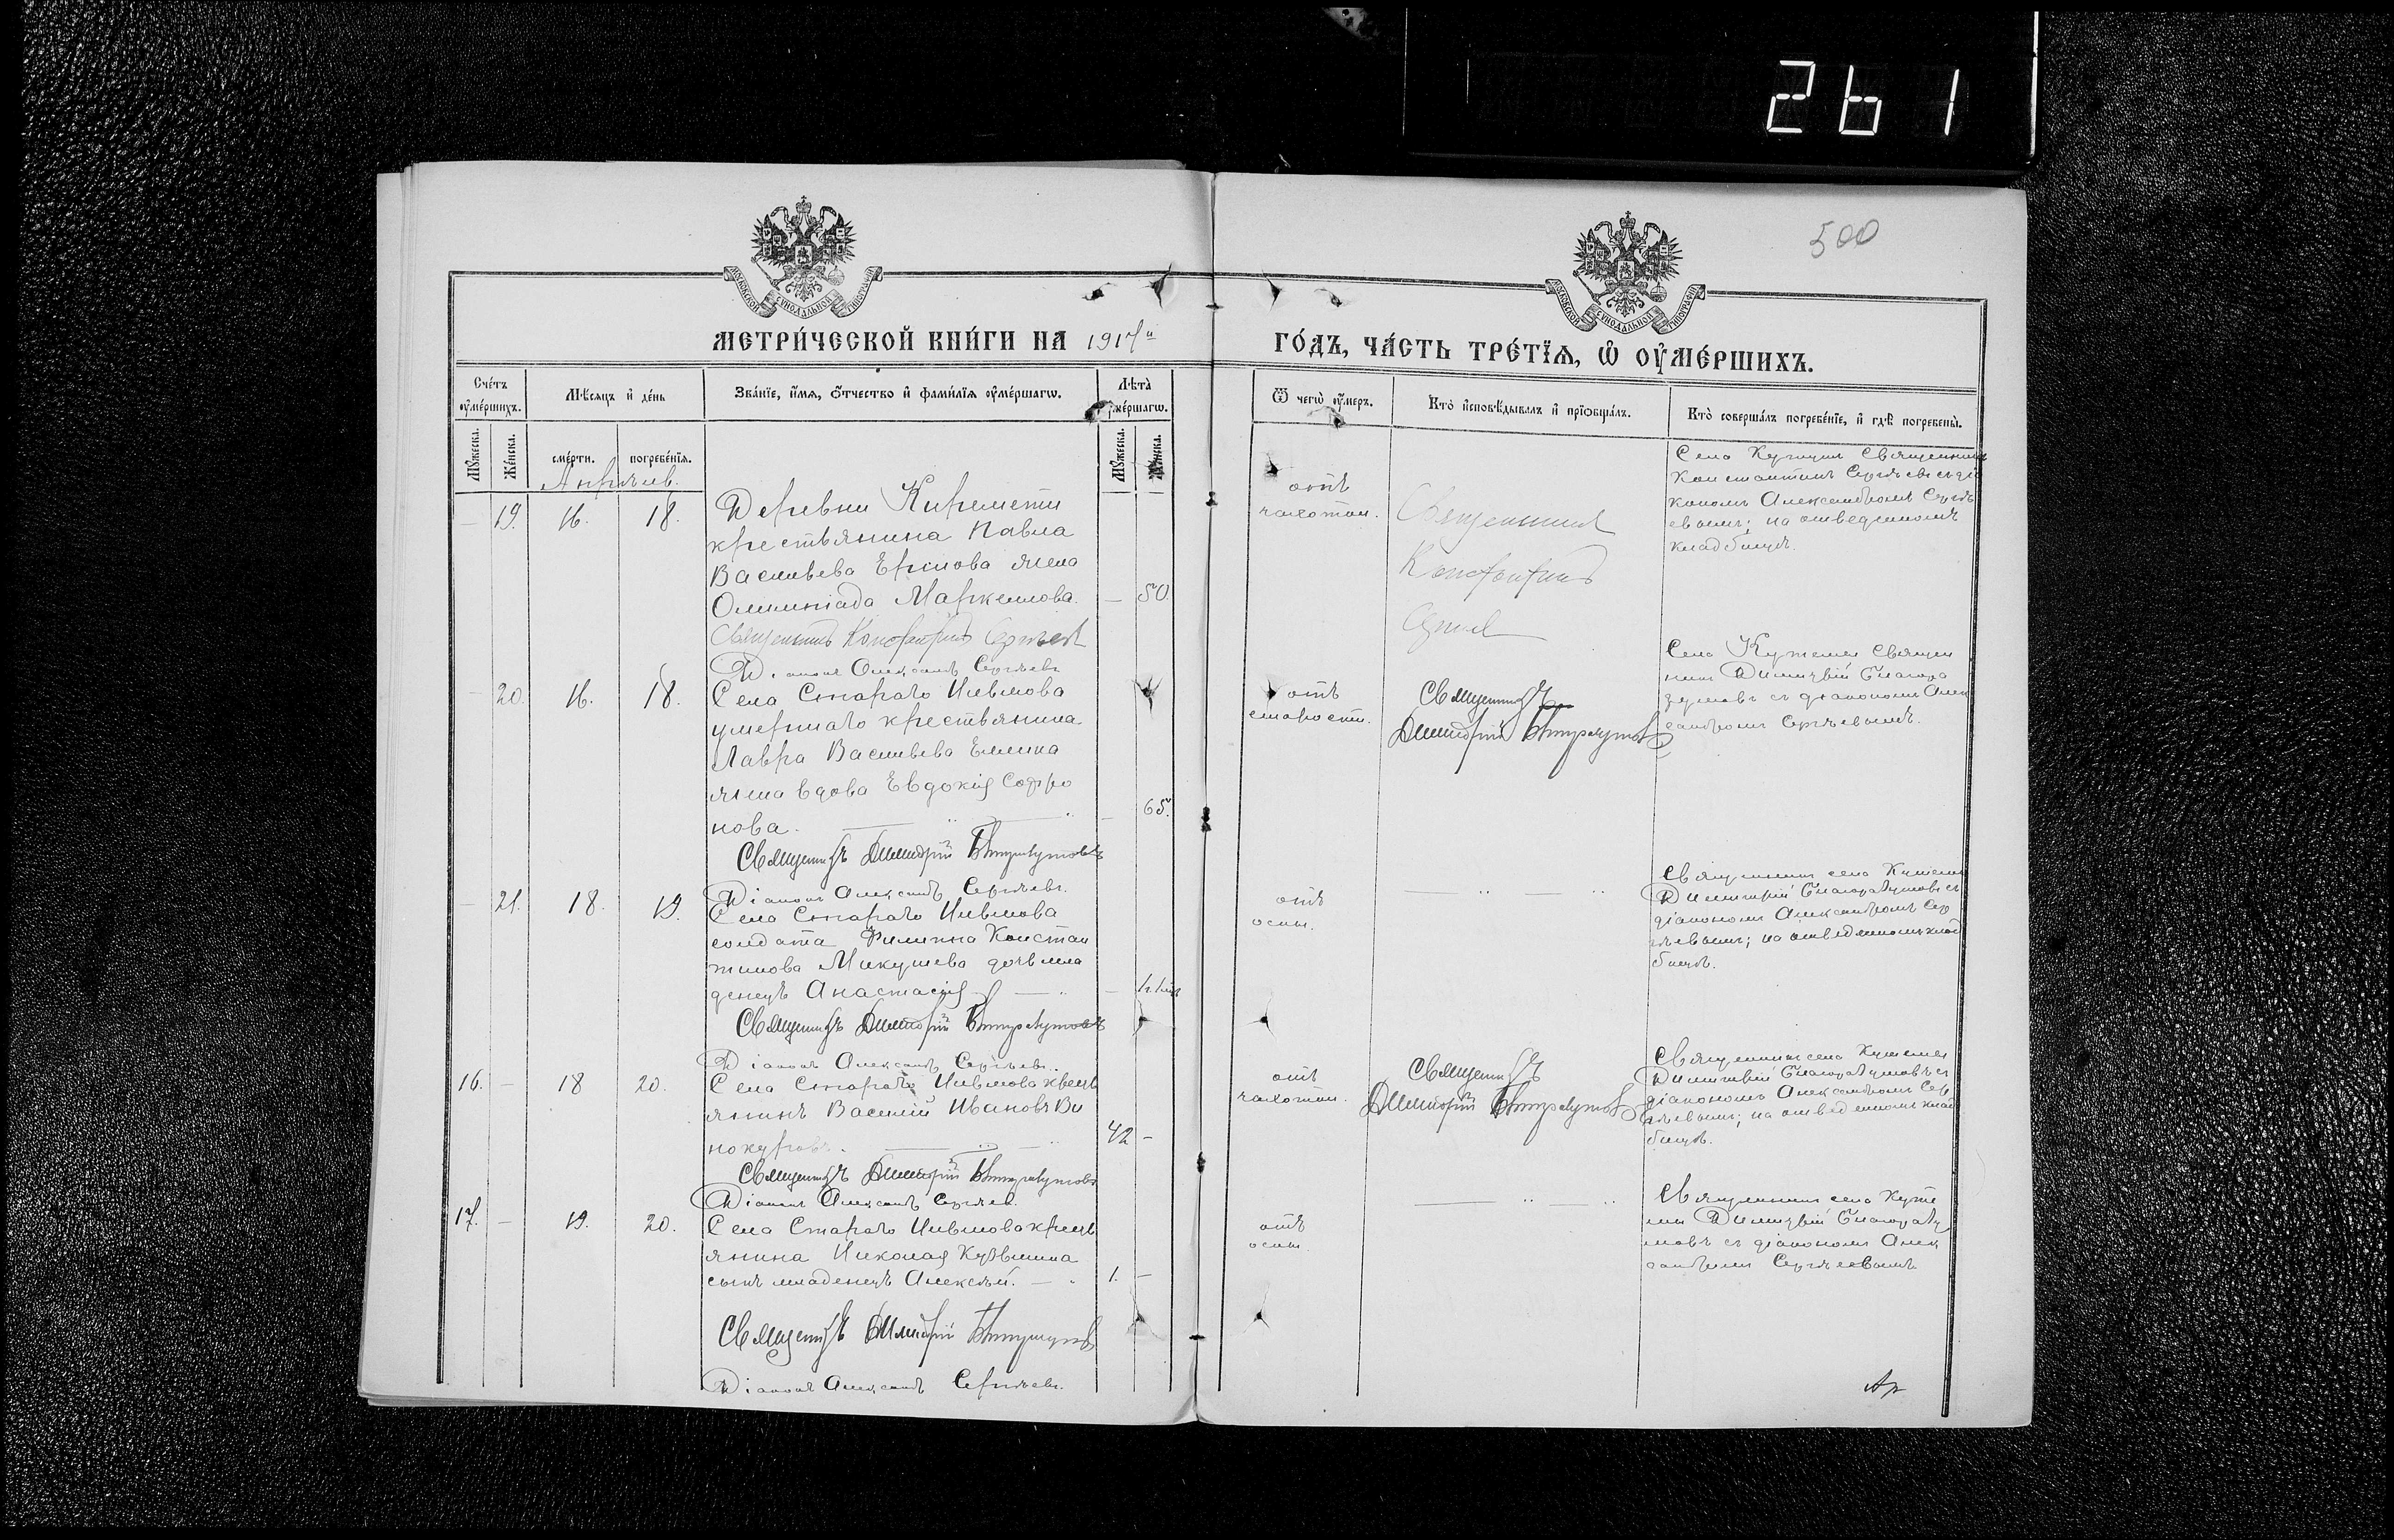 261
500
МОСКОВСКОЙ СѴНОДАЛЬНОЙ ТИПОГРАФІИ
МОСКОВСКОЙ СѴНОДАЛЬНОЙ ТИПОГРАФІИ
МЕТРИ́ЧЕСКОЙ КНИ́ГИ НА 1917й
ГО́ДЪ, ЧА́СТЬ ТРЕ́ТЇѦ, Ѡ҆ ОУ҆МЕ́РШИХЪ.
Сче́тъ оу҆ме́ршихъ.
Мѣ́сяцъ и҆ де́нь
Зва́нїе, и҆́мѧ, ѻ҆́тчество и҆ фами́лїѧ оу҆ме́ршагѡ.
Лѣ́та оу҆ме́ршагѡ.
Ѿ чегѡ̀ оу҆́меръ.
Кто̀ и҆сповѣ́дывалъ и҆ прїѡбща́лъ.
Кто̀ соверша́лъ погребе́нїе, и҆ гдѣ̀ погребены̀.
Мꙋ́жеска.
Же́нска.
сме́рти.
погребе́нїѧ.
Мꙋ́жеска.
Же́нска.
Апрѣль.
19. 16. 18.
Деревни Киремети
крестьянина Павла
Васильева Ермова жена
Олимпіада Маркелова. — 50.
Священникъ Константинъ Сергѣевъ
Діаконъ Александръ Сергѣевъ.
отъ
чахотки.
Священникъ
Константинъ
Сергѣевъ
Села Священникъ
Константинъ Сергѣевъ съ діа
кономъ Александромъ Сергѣ
евымъ; на отведенномъ
кладбищѣ.
20. 16. 18.
Села Стараго Ильмова
умершаго крестьянина
Лавра Васильева
жена вдова Евдокія Софро
нова. — 65.
Священникъ Димитрій
Діаконъ Александръ Сергѣевъ.
отъ
старости.
Священникъ
Димитрій
Села Кутеми Священ
никъ Димитрій Благора
зумовъ съ діакономъ Алек
сандромъ Сергѣевымъ.
21. 18. 19.
Села Стараго Ильмова
солдата Филиппа Констан
тинова Микушева дочь мла
денецъ Анастасія —
Священникъ Димитрій
Діаконъ Александръ Сергѣевъ.
отъ
оспы.
Священникъ села Кутеми
Димитрій Благоразумовъ съ
діакономъ Александромъ Сер
гѣевымъ; на отведенномъ клад
бищѣ.
16. — 18 20.
Села Стараго Ильмова кресть
янинъ Василій Ивановъ Ви
нокуровъ. 42 —
Священникъ Димитрій
Діаконъ Александръ Сергѣевъ.
отъ
чахотки.
Священникъ
Димитрій
Священникъ села Кутеми
Димитрій Благоразумовъ съ
діакономъ Александромъ Сер
гѣевымъ; на отведенномъ клад
бищѣ.
17. — 19. 20.
Села Стараго Ильмова кресть
янина Николая Кузьмина
сынъ младенецъ Алексѣй. — 1. —
Священникъ Димитрій
Діаконъ Александръ Сергѣевъ.
отъ
оспы.
Священникъ села Куте
ми Димитрій Благоразу
мовъ съ діакономъ Алек
сандромъ Сергѣевымъ